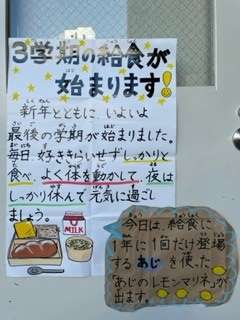 3学期の給食が
始まります!
新年とともに、いよいよ
最後の学期が始まりました。
毎日、好ききらいせずしっかりと
食べ、よく体を動かして、夜は
しっかり休んで元気に過ごし
ましょう。
MILK
今日は、給食に
1年に1回だけ登場
する あじを使った
「あじのレモンマリネ」が
出ます。